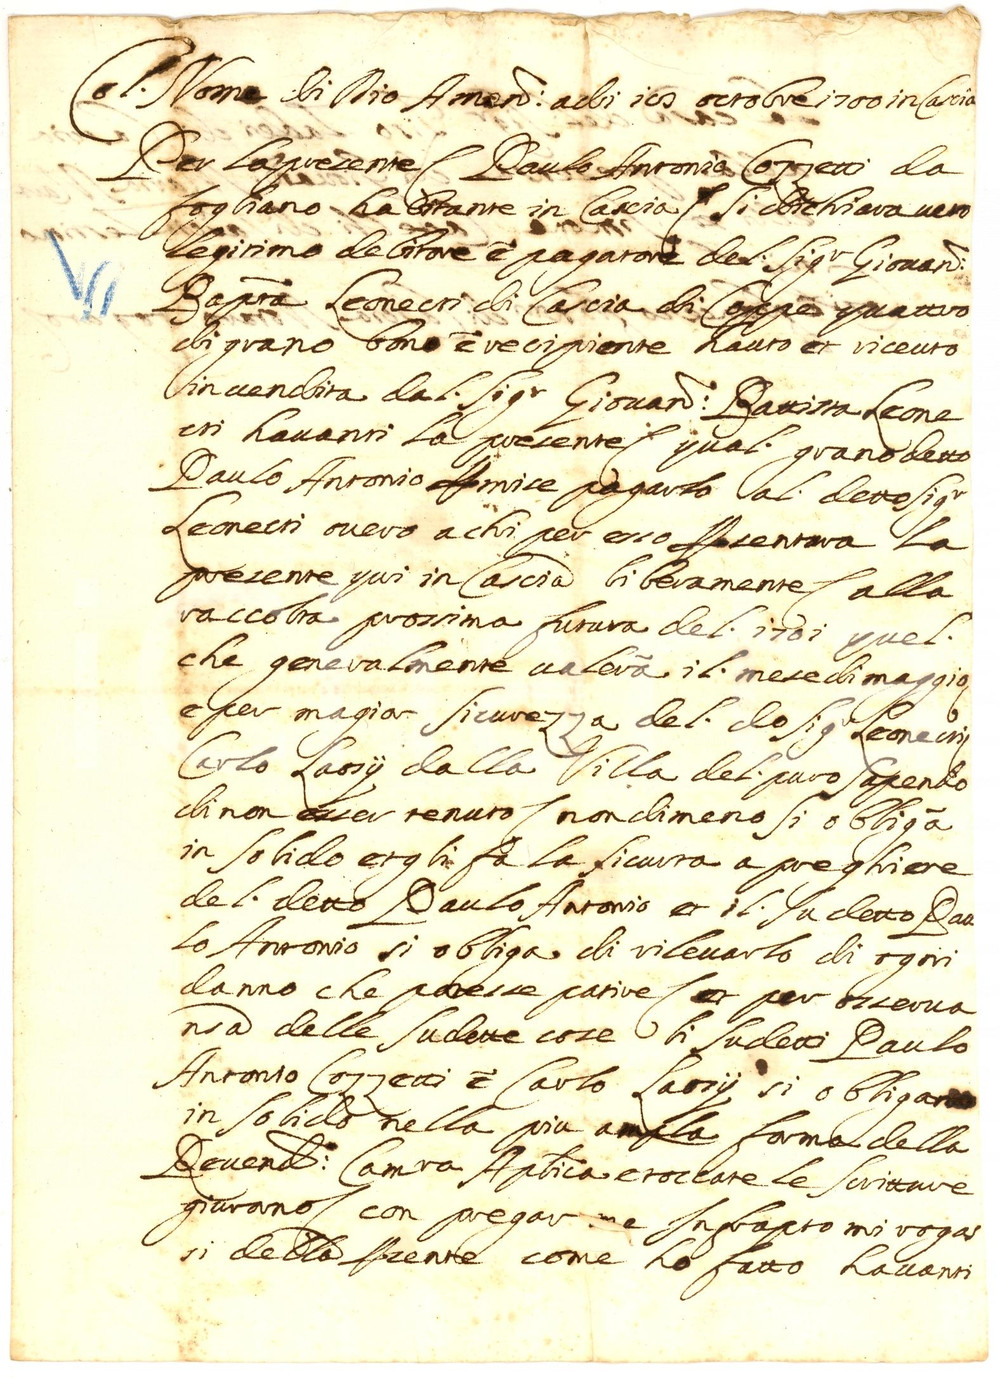 Col. Nome di Dio Amen: adi 10 octobre 1700 in Cascia
Per la presente Paulo Antonio Cozzetti da
fogliano habitante in Cascia si dichiara vero
legitimo debitore è pagatore del. Sigr Giovan:
Bapta Leonecti di Cascia di Coppe quattro
di grano bono è recipiente hauto et riceuto
in vendita dal. Sigr Giovan: Battista Leone
cti havanti la presente qual. grano detto
Paulo Antonio pmise pagarlo al. detto Sigr
Leonecti overo a chi per esso psentara la
presente qui in Cascia liberamente alla
raccolta prossima futura del. 1701 quel.
che generalmente valerà il. mese di maggio
e per magior sicurezza del. do Sigr Leonectij
Carlo Laosij dalla Villa del. puro sapendo
di non esser tenuto nondimeno si obligà
in solido et gli fà la sicurta a preghiere
del. detto Paulo Antonio et il. sudetto Pau
lo Antonio si obliga di rilevarlo di ogni
danno che potesse patire et per osserva
nsa delle sudette cose li sudetti Paulo
Antonio Cozzetti è Carlo Laosij si obligano
in solido nella piu ampla forma della
Reverend: Camra Aplica et toccate le scritture
giurorno con pregar me Infrapto mi rogas
si della psente come ho fatto havanti